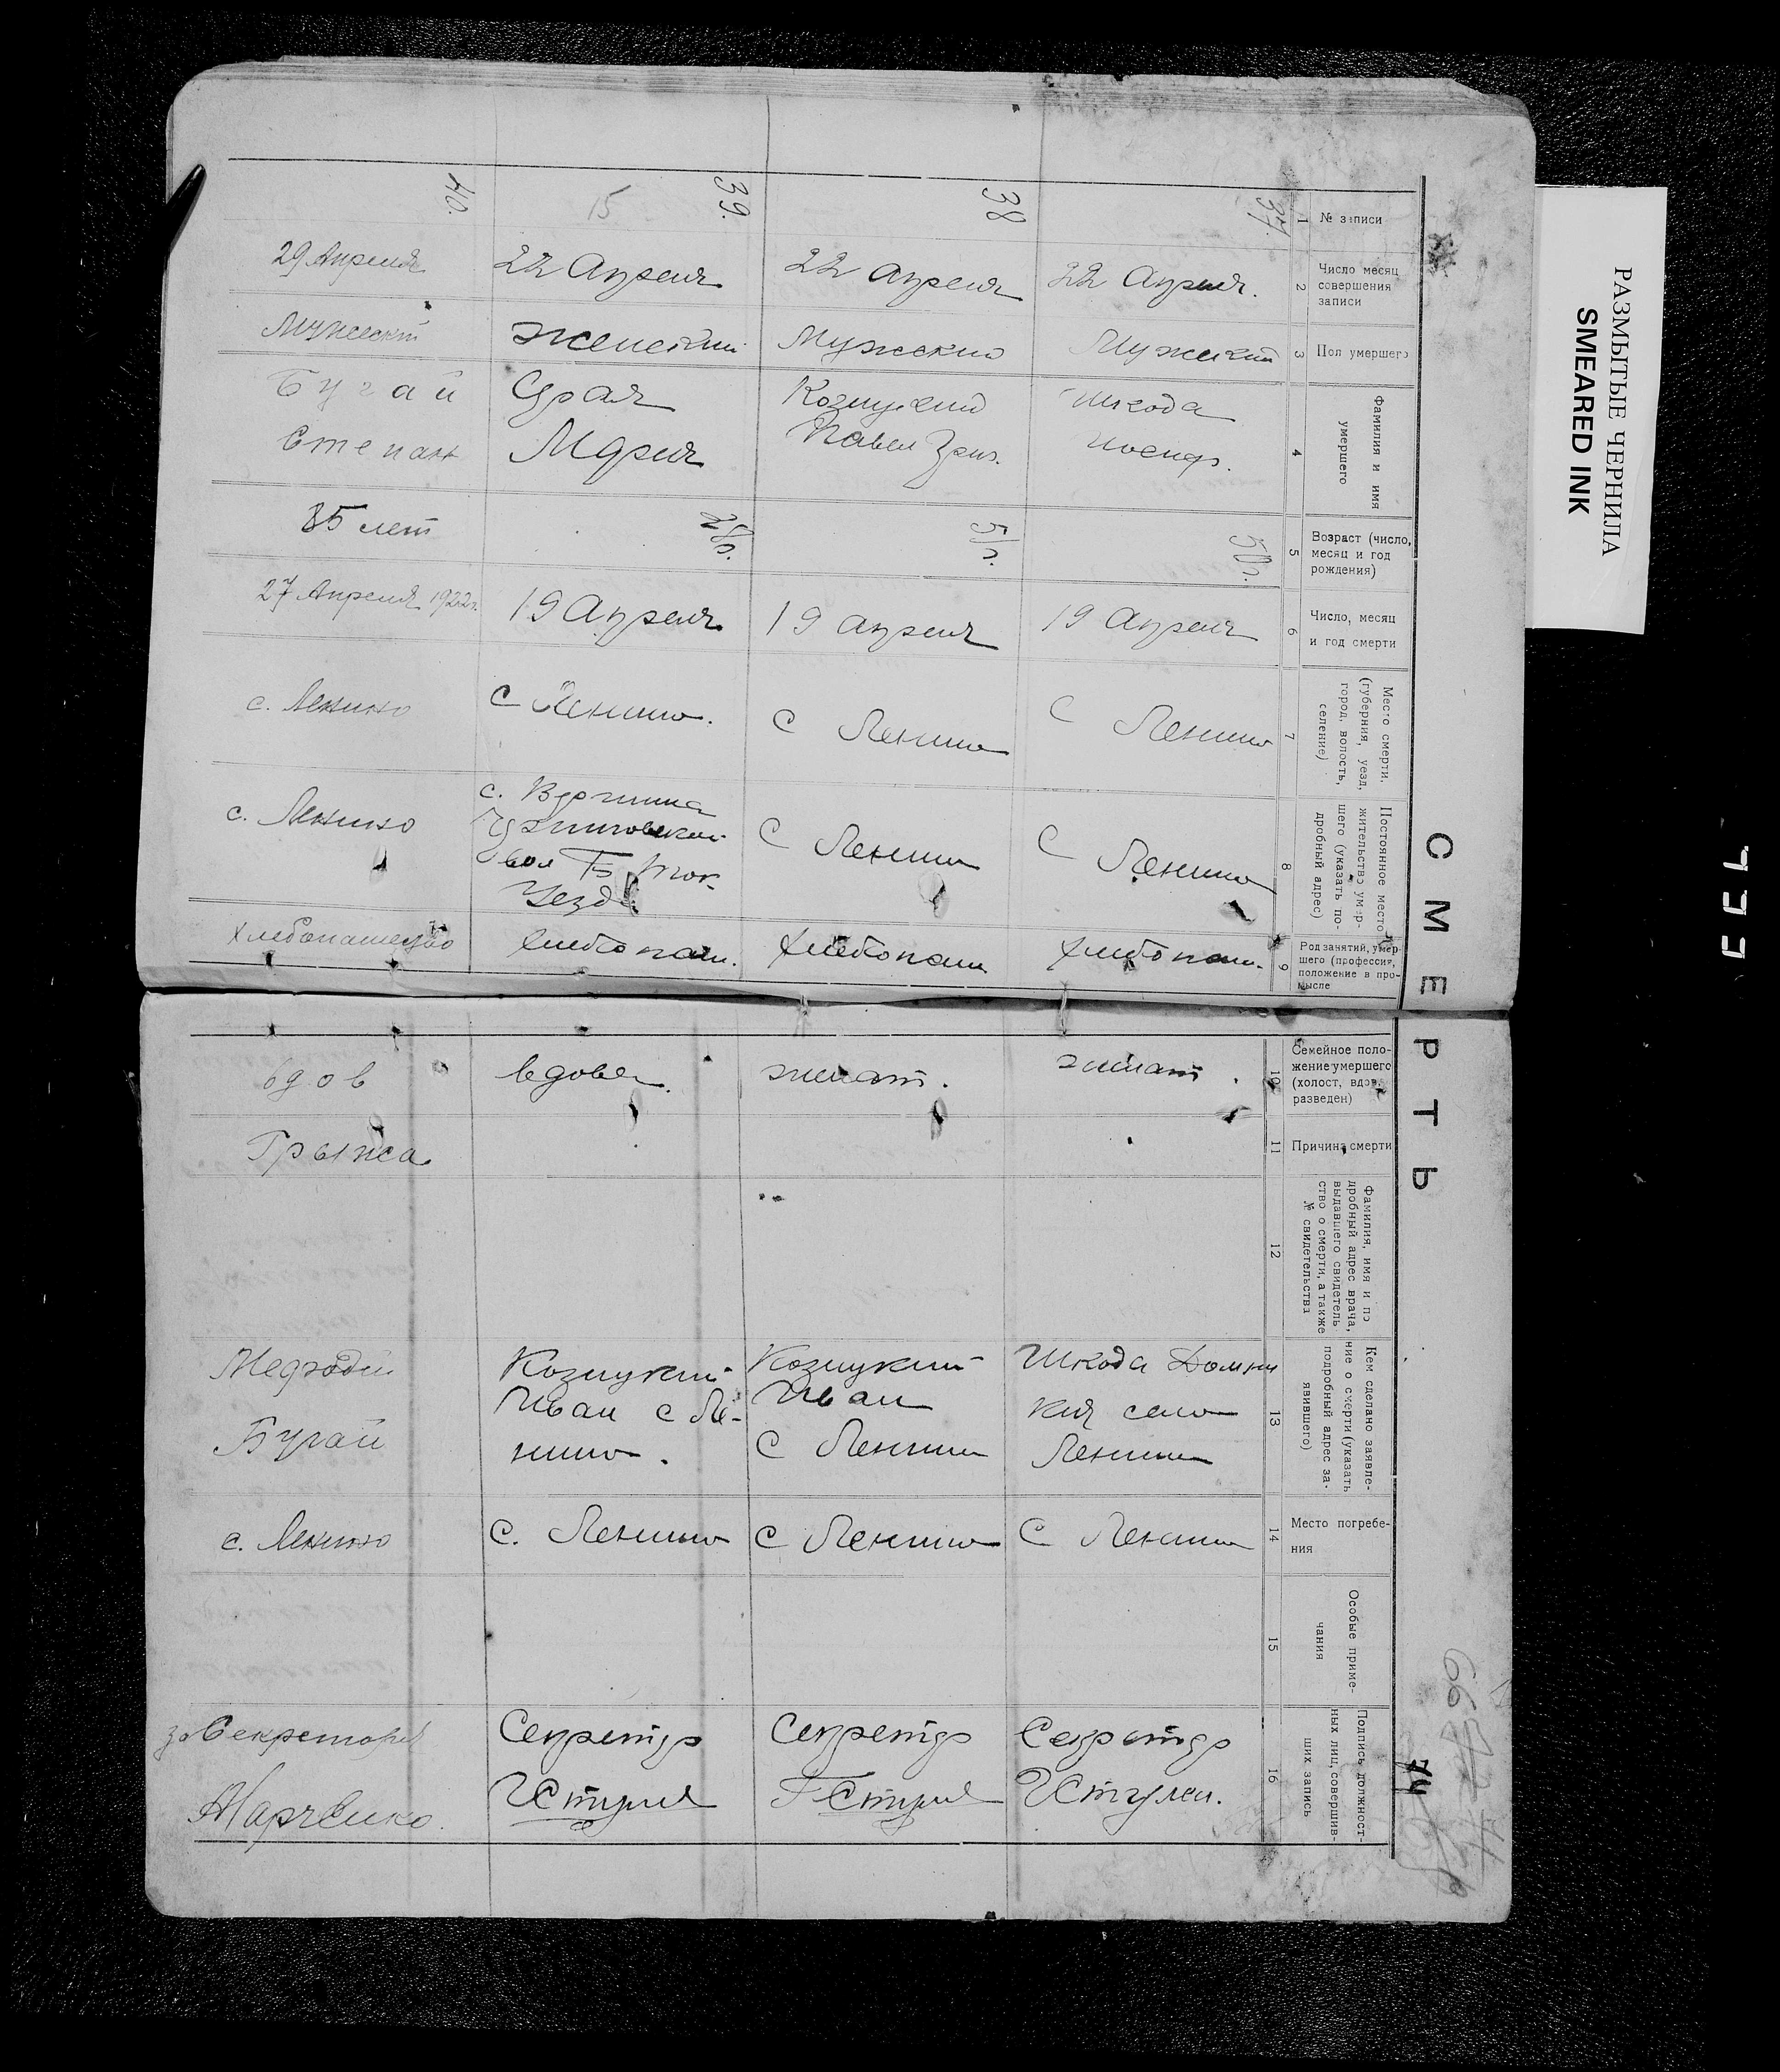 СМЕРТЬ
№ записи
1
37.
38
39.
15
40.
Число месяц
совершения
записи
2
22 Апреля.
22 апреля
22 Апреля
29 Апреля
Пол умершего
3
Мужский
Мужской
Женский
Мужеский
Фамилия и имя
умершего
4
Шкода
Козицкий
Павел
Мария
Бугай
Степан
Возраст (число,
месяц и год
рождения)
5
50
51
85 лет
Число, месяц
и год смерти
6
19 Апреля
19 апреля
19 Апреля
27 Апреля 1922г.
Место смерти,
(губерния, уезд,
город, волость,
селение)
7
С Ленино
С Ленино
С Ленино.
с. Ленино
Постоянное место
жительство умер-
шего (указать по-
дробный адрес)
8
С Ленино
С Ленино
с.
вол Б
Уезда
с. Ленино
Род занятий, умер-
шего (профессия,
положение в про-
мысле
9
хлебопаш.
хлебопаш
хлебопаш.
хлебопашество
Семейное поло-
жение умершего
(холост, вдов,
разведен)
10
женат.
женат.
вдова.
вдов
Причина смерти
11
Грыжа
Фамилия, имя и по
дробный адрес врача,
выдавшего свидетель
ство о смерти, а также
№ свидетельства
12
Кем сделано заявле-
ние о смерти (указать
подробный адрес за-
явившего)
13
Шкода Домни
кия село
Ленино
Козицкий
Иван
С Ленино
Козицкий
Иван с Ле-
нино.
Бугай
Место погребе-
ния
14
С Ленино
С Ленино
С. Ленино
с. Ленино
Особые приме-
чания
15
Подпись должност-
ных лиц, совершив-
ших запись
16
Секретарь
Секретарь
Секретарь
за Секретаря
Марченко.
74
РАЗМЫТЫЕ ЧЕРНИЛА
SMEARED INK